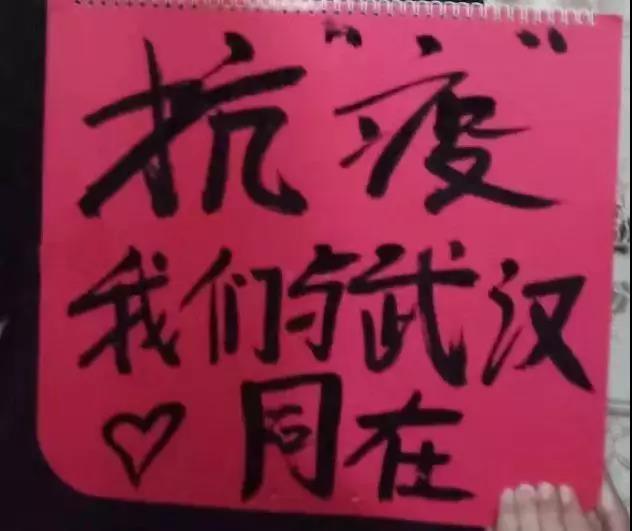 抗“疫”
我们与武汉
♡同在